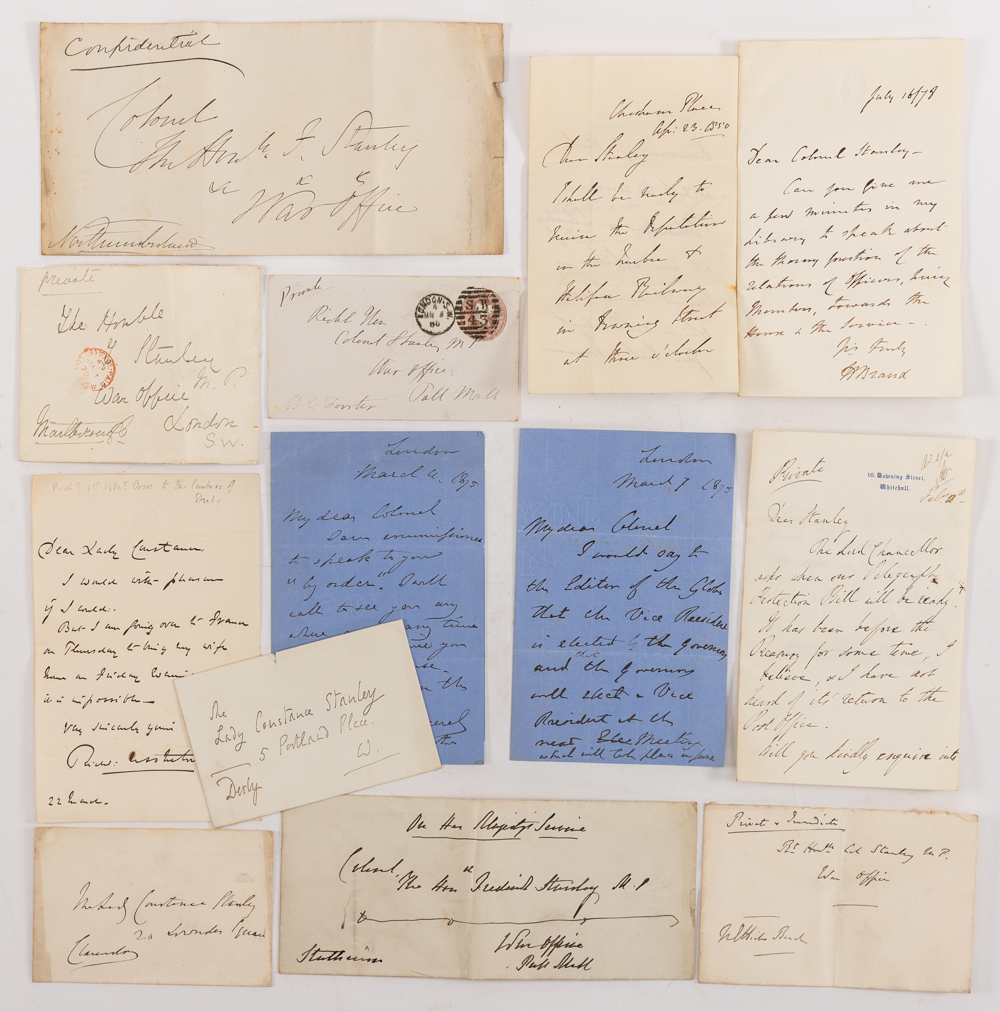 Confidential
Colonel
The Honble F. Stanley
War Office
Northumberland
Chesham Place
Ap: 23. 1850
Dear Stanley
I shall be ready to
receive the Deputation
on the Quebec &
Halifax Railway
in Downing Street
at three o'clock
July 16/78
Dear Colonel Stanley—
Can you give me
a few minutes in my
Library to speak about
the thorny question of the
relations of Officers, being
Members, towards the
House & the Service—
Yrs truly
HBrand
Private
The Honble
Stanley
M.P.
War Office
London
S.W.
Marlborough
Private
LONDON.S.W.
86
S.W.
43
Right Hon
Colonel Stanley MP
War office
Pall Mall
W E Forster
Dear Lady Constance,
I would with pleasure
if I could.
But I am going over to France
on Thursday to bring my wife
home on Friday
it is impossible—
Very sincerely yours
22 March.
London
March 4. 1895
My dear Colonel
I am commissioned
to speak to you
"by order." I will
call to see you any
where
any time
you
the
London
March 7 1895
My dear Colonel
I would say to
the Editor of the Globe
that the Vice President
is elected by the Governors
and that the Governors
will elect a Vice
President at the
next Meeting
which will take place in June
Private
10, Downing Street,
Whitehall.
Dear Stanley
The Lord Chancellor
asks when our Telegraph
Protection Bill will be ready.
It has been before the
Treasury for some time, I
believe, & I have not
heard of its return to the
Post Office.
Will you kindly enquire into
The
Lady Constance Stanley
5 Portland Place.
W.
Derby
The Lady Constance Stanley
20 Lowndes Square
Clarendon
On Her Majesty's Service
Colonel
The Honble Frederick Stanley M.P
War Office
Pall Mall
Strathnairn
Private & Immediate
Rt Honble Col Stanley M.P.
War Office